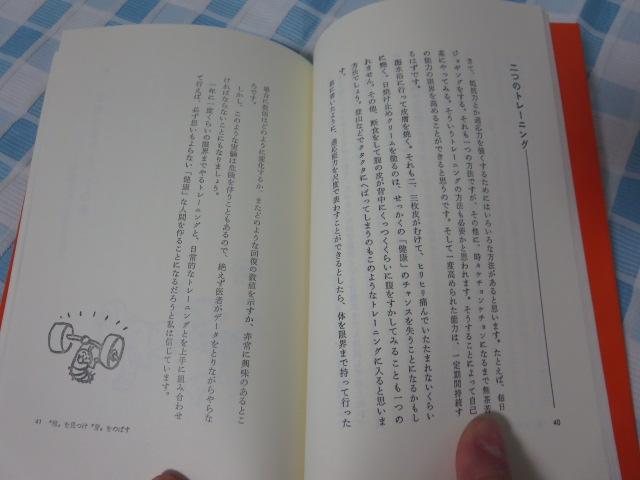 二つのトレーニング
さて、抵抗力とか適応力を強くするためにはいろいろな方法があると思います。たとえば、毎日
ジョギングをする、それも一つの方法ですが、その他に、時々ケチョンケチョンになるまで無茶苦
茶にやってみる。そういうトレーニングの方法も必要かと思われます。そうすることによって自己
の能力の限界を高めることができると思うのです。そして一度高められた能力は、一定期間持続す
るはずです。
海水浴に行って皮膚を焼く。それも二、三枚皮がむけて、ヒリヒリ痛んでいたたまれないくらい
に焼く。日焼け止めクリームを塗るのは、せっかくの「健康」のチャンスを失うことになるかもし
れません。その他、断食をして腹の皮が背中にくっつくぐらいに腹をすかしてみることも一つの
方法でしょう。登山などでクタクタにへばってしまうのもこのようなトレーニングに入ると思いま
す。
前に書いたように、適応能力を尺度で表わすことができるとしたら、体を限界まで持って行った
場合に数値はどのように変化するか、またどのような回復の数値を示すか、非常に興味のあるとこ
ろです。
しかし、このような実験は危険を伴うこともあるので、絶えず医者がデータをとりながらやらな
ければならないことにもなりましょう。
一年に一度くらいの限界までやるトレーニングと、日常的なトレーニングとを上手に組み合わせ
て行えば、必ず思いもよらない「健康」な人間を作ることになるだろうと私は信じています。
40
41 〝根〟を見つけ〝芽〟をのばす